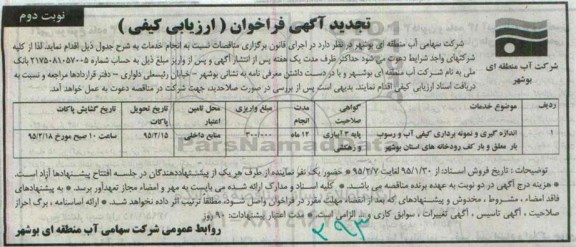 نوبت دوم
تجدید آگهی فراخوان ( ارزیابی کیفی )
شرکت آب منطقه ای
بوشهر
شرکت سهامی آب منطقه ای بوشهر در نظر دارد در اجرای قانون برگزاری مناقصات نسبت به انجام خدمات به شرح جدول ذیل اقدام نماید. لذا از کلیه
شرکتهای واجد شرایط دعوت می شود حداکثر ظرف مدت یک هفته پس از انتشار آگهی و پس از واریز مبلغ ذیل به حساب شماره ۲۱۷۵۰۸۱۰۵۷۰۰۵ بانک
ملی به نام شرکت آب منطقه ای بوشهر و با در دست داشتن معرفی نامه به نشانی بوشهر - خیابان رئیسعلی دلواری - دفتر قراردادها مراجعه و نسبت به
دریافت اسناد ارزیابی کیفی اقدام نمایند. بدیهی است پس از بررسی در صورت صلاحدید، جهت شرکت در مناقصه دعوت به عمل خواهد آمد.
ردیف موضوع خدمات گواهی صلاحیت مدت انجام مبلغ واریزی محل تامین اعتبار تاریخ تحویل پاکات تاریخ گشایش پاکات
۱ اندازه گیری و نمونه برداری کیفی آب و رسوب بار معلق و بار کف رودخانه های استان بوشهر پایه ۳ آبیاری و زهکشی ۱۲ ماه ۳۰۰/۰۰۰ منابع داخلی ۹۵/۲/۱۵ ساعت ۱۰ صبح مورخ ۹۵/۲/۱۸
توضیحات : تاریخ فروش اسناد: از ۹۵/۱/۳۰ لغایت ۹۵/۲/۷ • حضور یک نفر نماینده از طرف هر یک از پیشنهاددهندگان در جلسه افتتاح پیشنهادها آزاد است.
• هزینه درج آگهی در دو نوبت به عهده برنده مناقصه می باشد. • کلیه اسناد و مدارک ارائه شده می بایست به مهر و امضاء مجاز تعهدآور برسد. • به پیشنهادهای
فاقد امضاء ، مشروط ، مخدوش و پیشنهادهای که بعد از انقضاء مهلت مقرر در فراخوان واصل شود، مطلقاً ترتیب اثر داده نخواهد شد. • ارائه اساسنامه ، برگ احراز
صلاحیت ، آگهی تاسیس ، آگهی تغییرات ، سوابق کاری الزامی است. • مدت اعتبار پیشنهادات: ۹۰ روز
روابط عمومی شرکت سهامی آب منطقه ای بوشهر
ParsNamadData